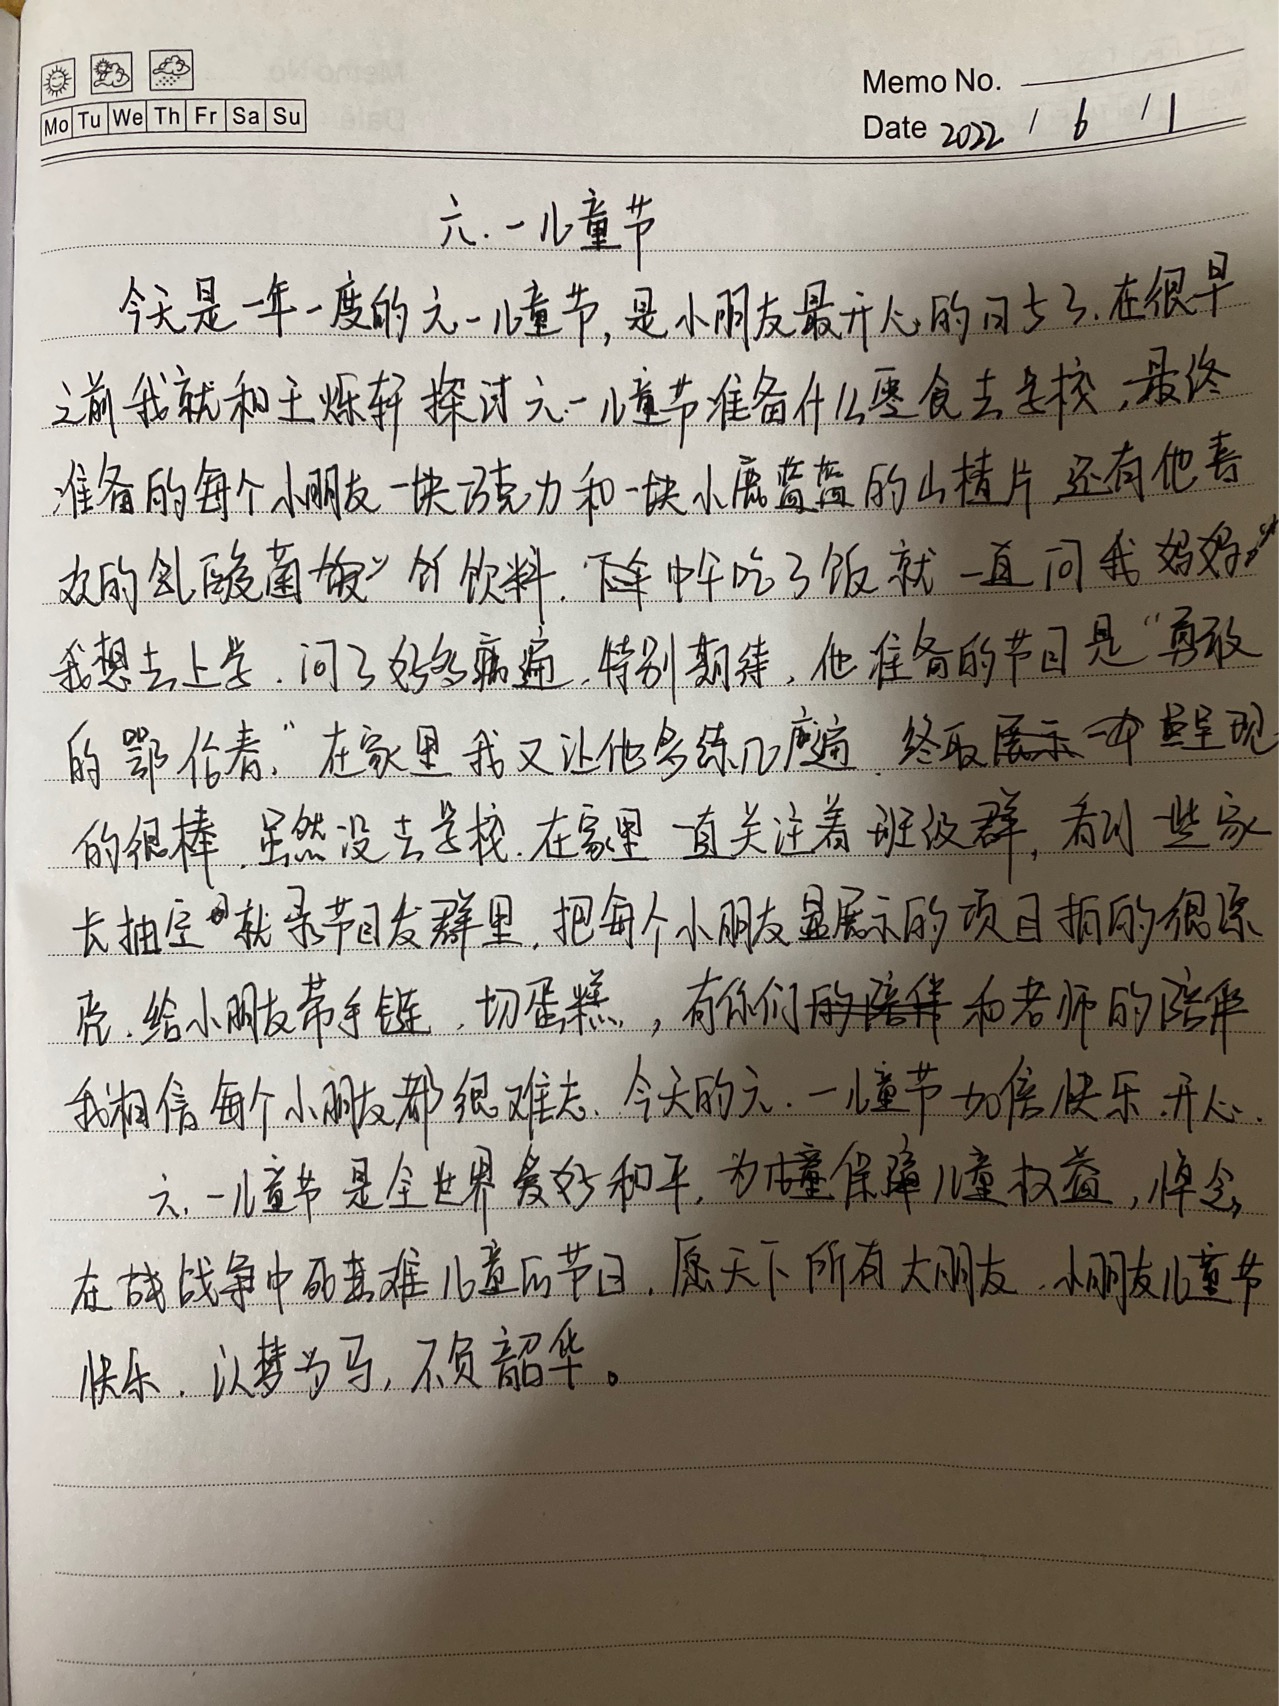 Mo Tu We Th Fr Sa Su
Memo No.
Date 2022 / 6 / 1
六.一儿童节
今天是一年一度的六.一儿童节,是小朋友最开心的日子了.在很早
之前我就和王烁轩探讨六.一儿童节准备什么零食去学校,最终
准备的每个小朋友一块巧克力和一块小鹿蓝蓝的山楂片 还有他喜
欢的乳酸菌 饮料.中午吃了饭就一直问我妈妈"
我想去上学.问了好多遍.特别期待,他准备的节目是"勇敢
的鄂伦春."在家里我又让他多练几遍.终取 呈现
的很棒.虽然没去学校.在家里一直关注着班级群,看到一些家
长抽空就录节目发群里.把每个小朋友展示的项目拍的很漂
亮.给小朋友带手链.切蛋糕,有你们和老师的陪伴
我相信每个小朋友都很难忘.今天的六.一儿童节加倍快乐.开心.
六.一儿童节是全世界爱好和平.为保障儿童权益,悼念
在战争中死难儿童的节日.愿天下所有大朋友.小朋友儿童节
快乐.以梦为马,不负韶华。